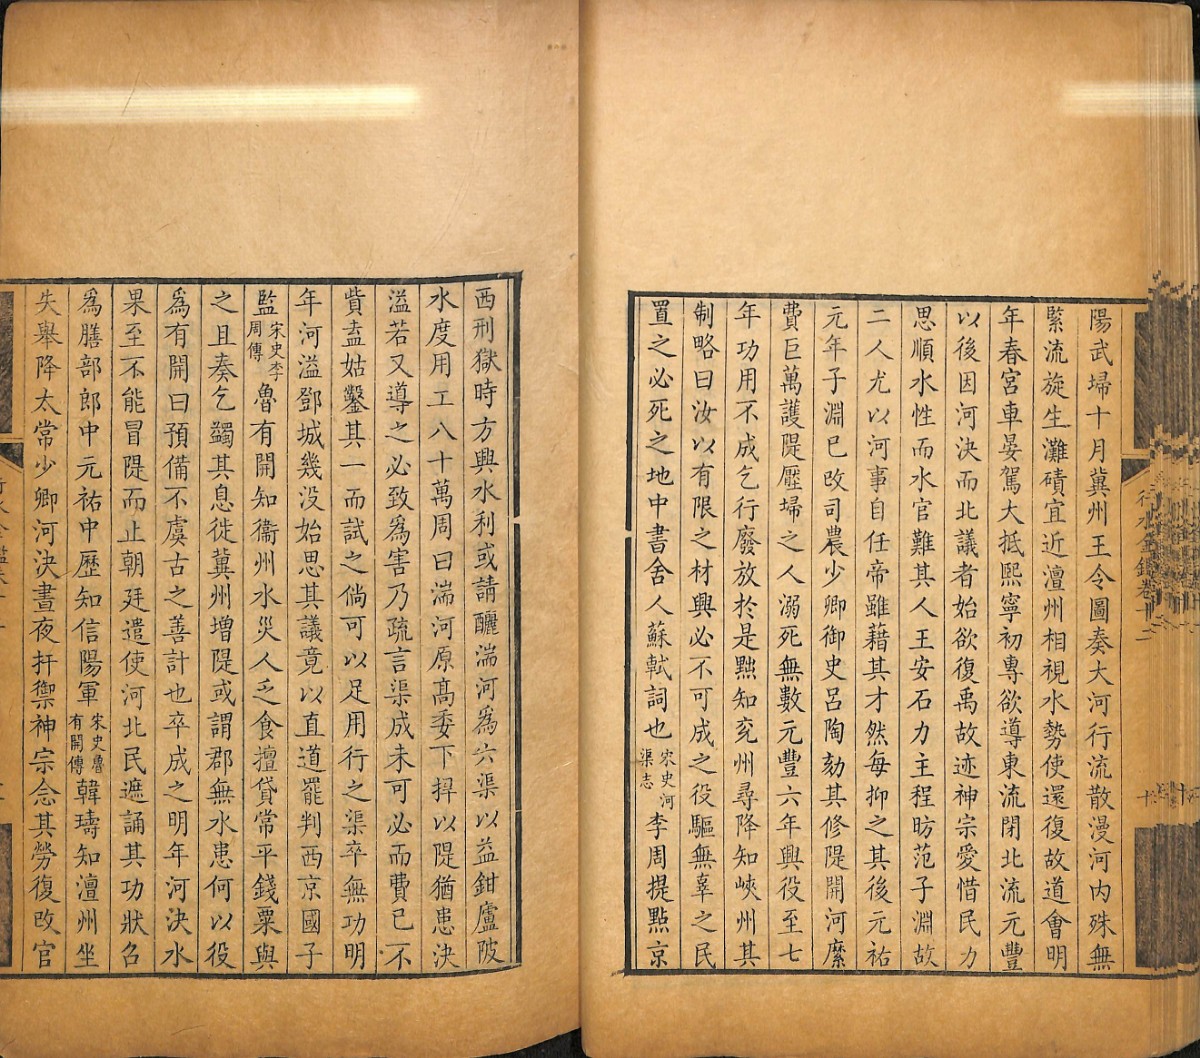 陽武埽十月冀州王令圖奏大河行流散漫河內殊無
緊流旋生灘磧宜近澶州相視水勢使還復故道會明
年春宮車晏駕大抵熙寧初專欲導東流閉北流元豐
以後因河決而北議者始欲復禹故迹神宗愛惜民力
思順水性而水官難其人王安石力主程昉范子淵故
二人尤以河事自任帝雖藉其才然每抑之其後元祐
元年子淵已改司農少卿御史呂陶劾其修隄開河縻
費巨萬護隄壓埽之人溺死無數元豐六年興役至七
年功用不成乞行廢放於是黜知兖州尋降知峽州其
制略曰汝以有限之材興必不可成之役驅無辜之民
置之必死之地中書舍人蘇軾詞也宋史河渠志李周提點京
西刑獄時方興水利或請釃湍河爲六渠以益鉗廬陂
水度用工八十萬周曰湍河原高委下捍以隄猶患決
溢若又導之必致爲害乃疏言渠成未可必而費已不
貲盍姑鑿其一而試之倘可以足用行之渠卒無功明
年河溢鄧城幾没始思其議竟以直道罷判西京國子
監宋史李周傳魯有開知衞州水災人乏食擅貸常平錢粟與
之且奏乞蠲其息徙冀州增隄或謂郡無水患何以役
爲有開曰預備不虞古之善計也卒成之明年河決水
果至不能冒隄而止朝廷遣使河北民遮誦其功狀召
爲膳部郎中元祐中歷知信陽軍宋史魯有開傳韓璹知澶州坐
失舉降太常少卿河決晝夜扞禦神宗念其勞復改官
行水金鑑卷十二